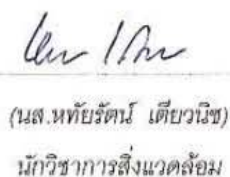 (นส.หทัยรัตน์ เตียวนิช)
นักวิชาการสิ่งแวดล้อม